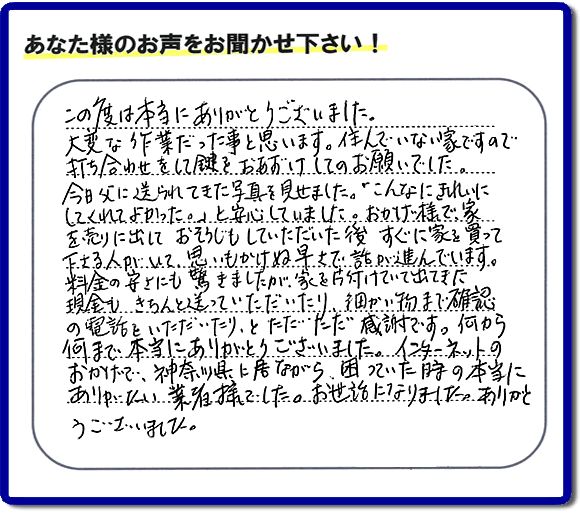 あなた様のお声をお聞かせ下さい!
この度は本当にありがとうございました。
大変な作業だった事と思います。住んでいない家ですので
打ち合わせをして鍵をおあずけしてのお願いでした。
今日父に送られてきた写真を見せました。「こんなにきれいに
してくれてよかった。」と安心していました。おかげ様で、家
を売りに出して おそうじもしていただいた後 すぐに家を買って
下さる人がいて、思いもかけぬ早さで話が進んでいます。
料金の安さにも驚きましたが、家を片付けていて出てきた
現金も きちんと送っていただいたり、細かい物まで確認
の電話をいただいたり、と ただただ 感謝です。何から
何まで本当にありがとうございました。インターネットの
おかげで、神奈川県に居ながら、困っていた時の本当に
ありがたい 業者様でした。お世話になりました。ありがと
うございました。